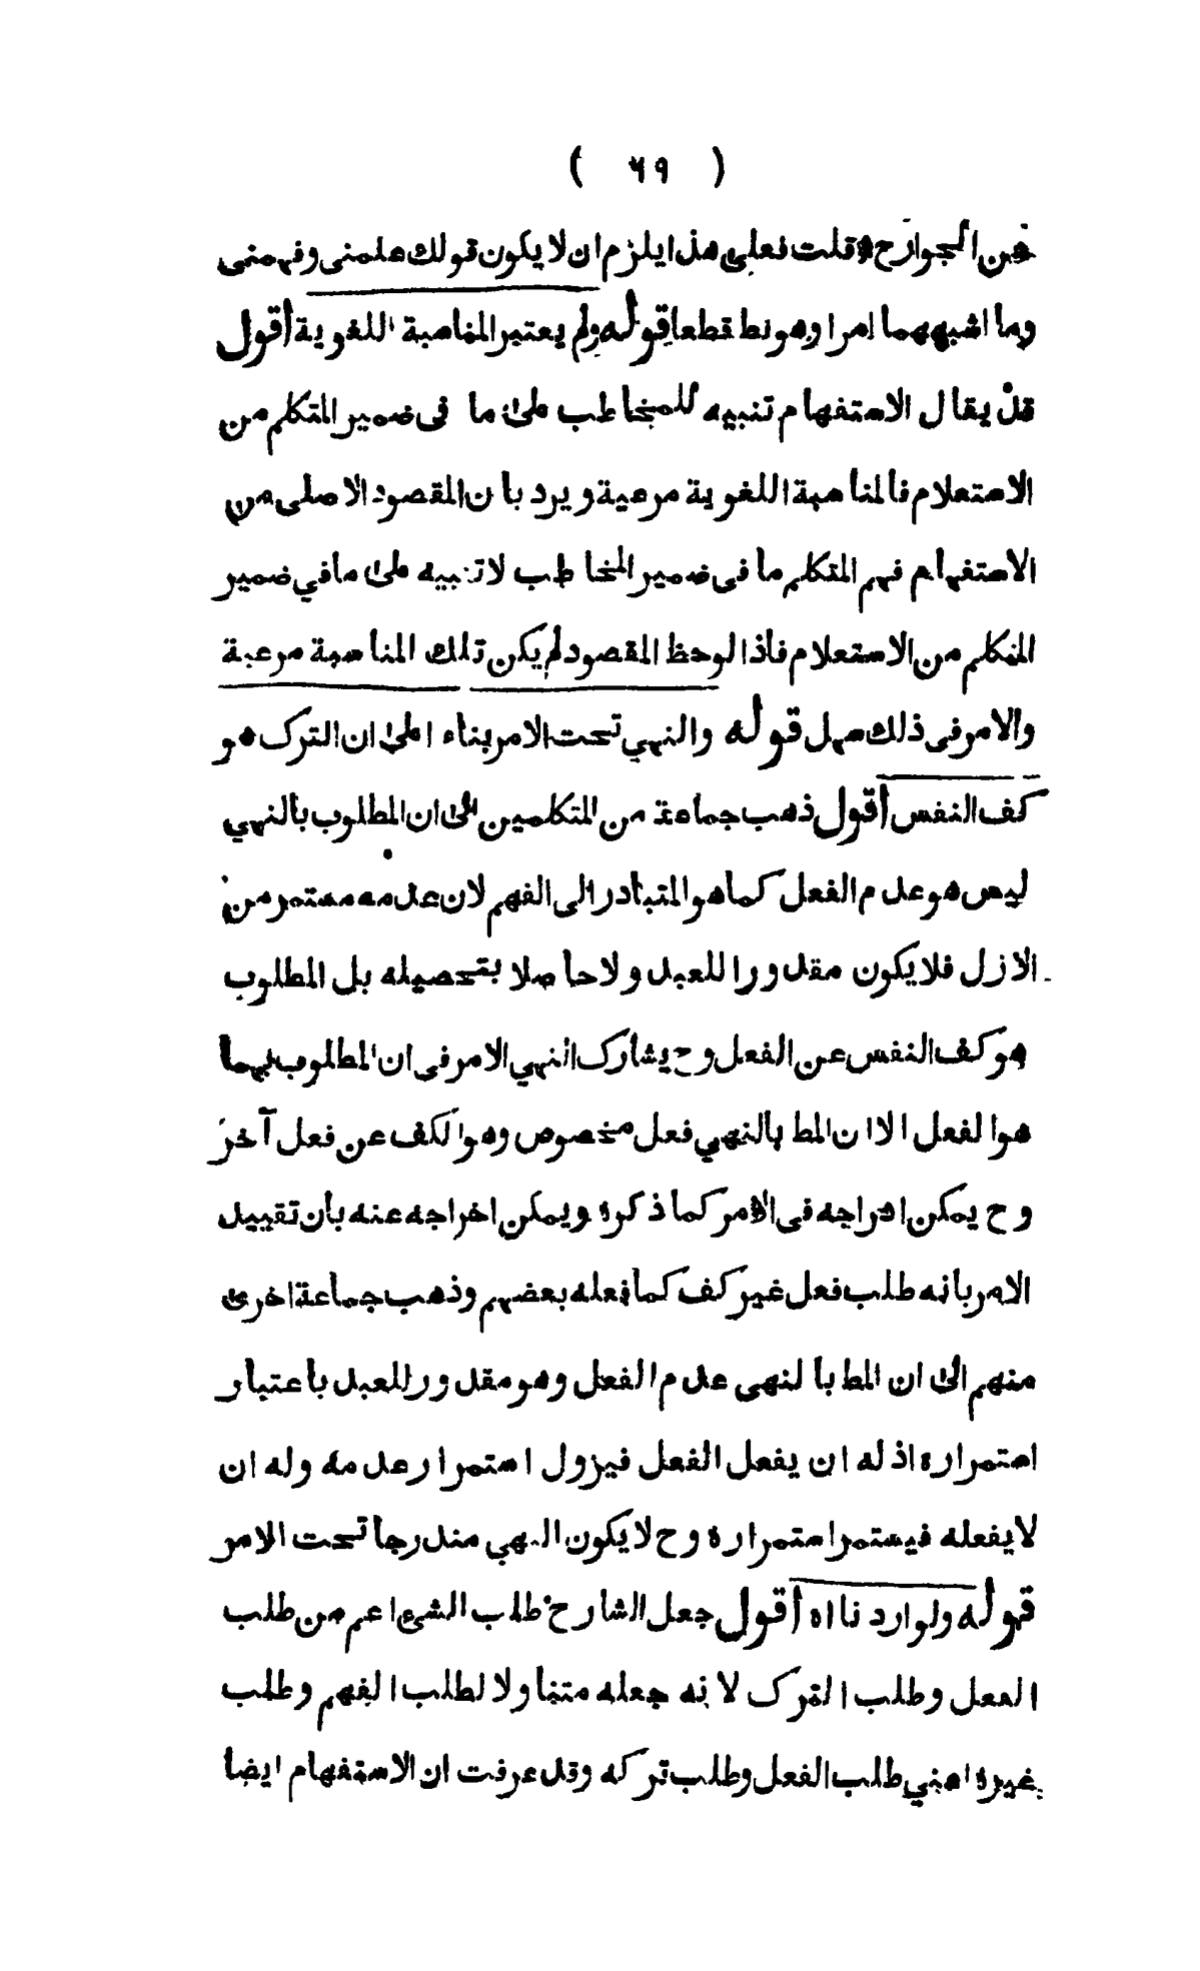 ( ٦٩ )
عن الجوارح قلت فعلى هذا يلزم ان لا يكون قولك علمنى وفهمنى
وما اشبههما امرا وهو بط قطعا قوله ولم يعتبر المناسبة اللغوية أقول
قد يقال الاستفهام تنبيه للمخاطب على ما فى ضمير المتكلم من
الاستعلام فالمناسبة اللغوية مرعية ويرد بان المقصود الاصلى من
الاستفهام فهم المتكلم ما فى ضمير المخاطب لا تنبيه على ما في ضمير
المتكلم من الاستعلام فاذا لوحظ المقصود لم يكن تلك المناسبة مرعية
والامر فى ذلك سهل قوله والنهي تحت الامر بناء على ان الترك هو
كف النفس أقول ذهب جماعة من المتكلمين الى ان المطلوب بالنهي
ليس هو عدم الفعل كما هو المتبادر الى الفهم لان عدمه مستمر من
الازل فلا يكون مقدورا للعبد ولا حاصلا بتحصيله بل المطلوب
هو كف النفس عن الفعل وح يشارك النهي الامر فى ان المطلوب بهما
هو الفعل الا ان المط بالنهي فعل مخصوص وهو الكف عن فعل آخر
وح يمكن ادراجه فى الامر كما ذكره ويمكن اخراجه عنه بان تقييد
الامر بانه طلب فعل غير كف كما فعله بعضهم وذهب جماعة اخرى
منهم الى ان المط بالنهى عدم الفعل وهو مقدور للعبد باعتبار
استمراره اذ له ان يفعل الفعل فيزول استمرار عدمه وله ان
لا يفعله فيستمر استمراره وح لا يكون النهي مندرجا تحت الامر
قوله ولو اردنا اه أقول جعل الشارح طلب الشئ اعم من طلب
الفعل وطلب الترك لانه جعله متناولا لطلب الفهم وطلب
غيره اعني طلب الفعل وطلب تركه وقد عرفت ان الاستفهام ايضا